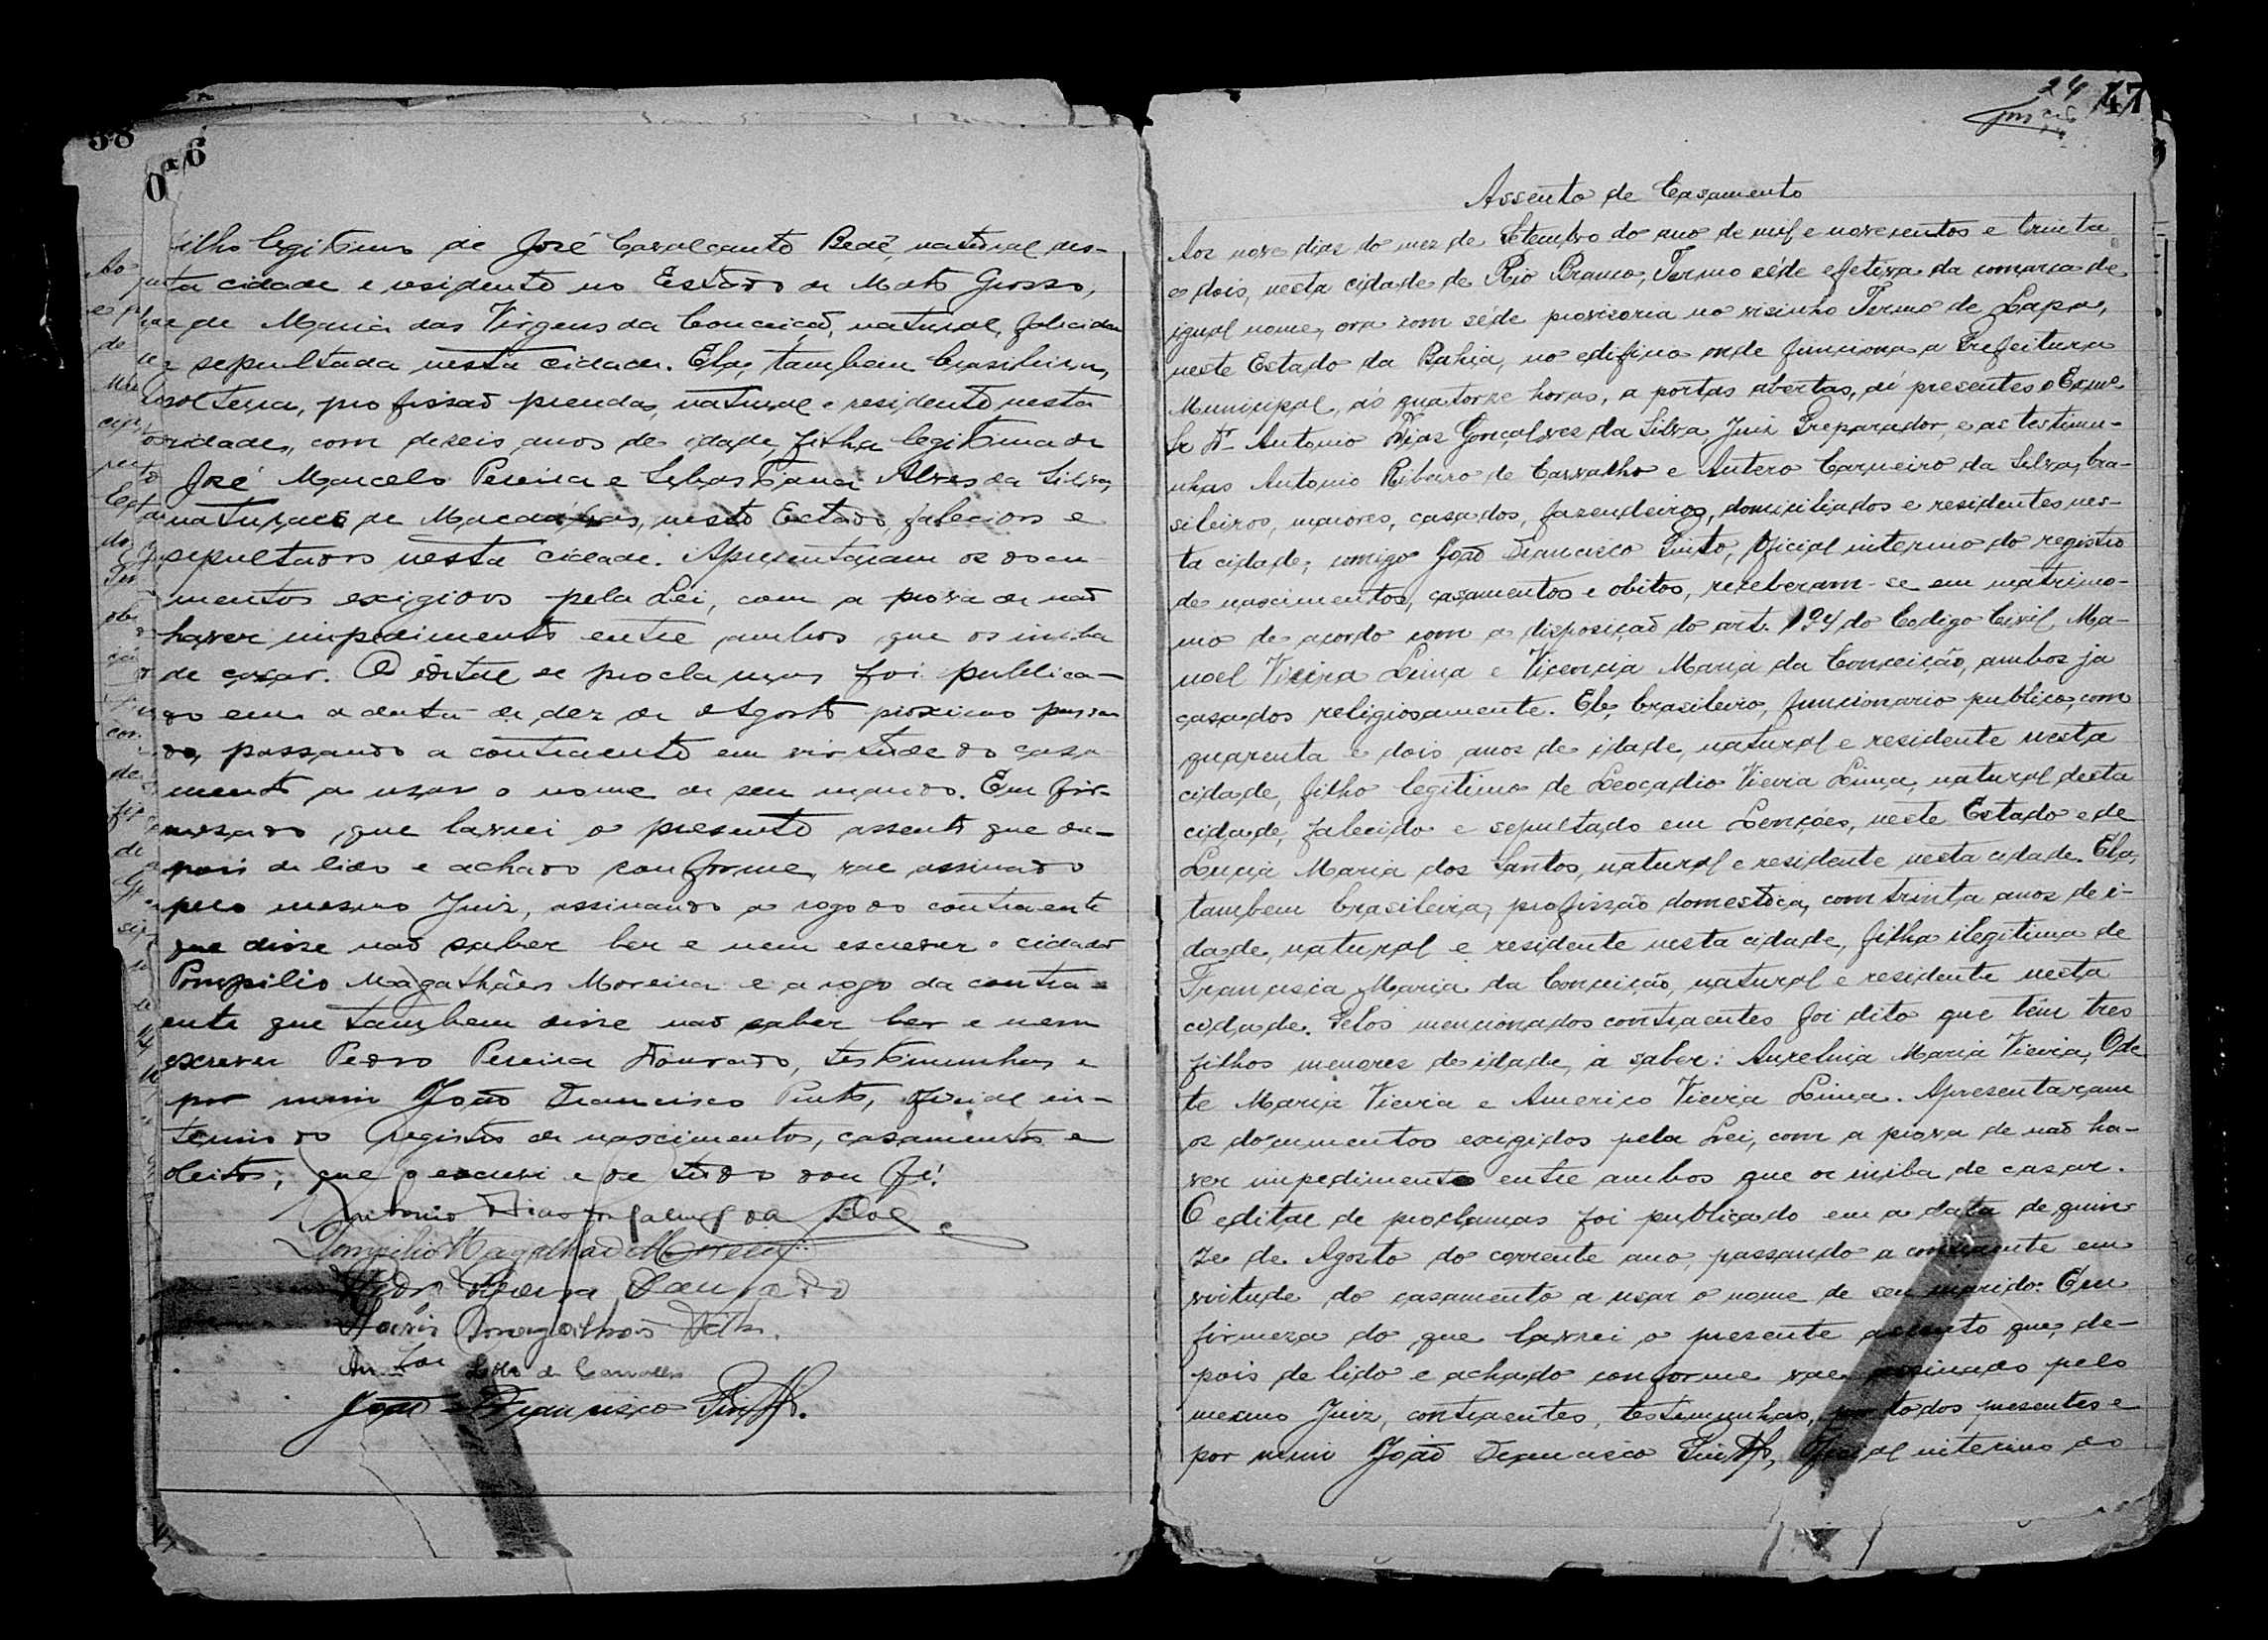 46
filho legitimo de José Cavalcanto Bedê, natural des-
ta cidade e residente no Estado de Mato Grosso,
e de Maria das Virgens da Conceicaõ, natural, falecida
e sepultada nesta cidade. Ela, tambem brasileira,
solteira, profissaõ prendas, natural e residente nesta
cidade, com deseis anos de idade, filha legitima de
José Marcelo Pereira e Sebastiana Alves da Silva,
naturaes de Macaúbas, neste Estado, falecidos e
sepultados nesta cidade. Apresentaram os docu-
mentos exigidos pela Lei, com a prova de naõ
haver impedimento entre ambos que os iniba
de casar. O edital de proclamas foi publica-
do em a data de dez de Agosto proximo passa-
do, passando a contraente em virtude do casa-
mento a usar o nome de seu marido. Em fir-
meza do que lavrei o presente assento que de-
pois de lido e achado conforme, vae assinado
pelo mesmo Juiz, assinando a rogo do contraente
que disse naõ saber ler e nem escrever o cidadaõ
Pompilio Magalhães Moreira e a rogo da contra-
ente que tambem disse naõ saber ler e nem
escrever Pedro Pereira Dourado, testimunhas e
por mim João Francisco Pinto, oficial in-
terino do registro de nascimentos, casamentos e
obitos, que o escrevi e de tudo dou fé.
Antonio Dias Gonçalves da Silva
Pompilio Magalhães Moreira
Pedro Pereira Dourado
de Carvalho
João Francisco Pinto.
24
47
Assento de Casamento
Aos nove dias do mez de Setembro do ano de mil e novecentos e trinta
e dois, nesta cidade de Rio Branco, Termo séde efetiva da comarca de
igual nome, ora com séde provisoria no visinho Termo de Lapa,
neste Estado da Bahia, no edificio onde funciona a Prefeitura
Municipal, ás quatorze horas, a portas abertas, aí presentes o Exmº
Sr Dr Antonio Dias Gonçalves da Silva Juiz Preparador, e as testimu-
nhas Antonio Ribeiro de Carvalho e Antero Carneiro da Silva, bra-
sileiros, maiores, casados, fazendeiros, domiciliados e residentes nes-
ta cidade; comigo João Francisco Pinto, Oficial interino do registro
de nascimentos, casamentos e obitos, receberam-se em matrimo-
nio de acordo com a disposiçaõ do art. 194 do Codigo Civil, Ma-
noel Vieira Lima e Vicencia Maria da Conceição, ambos ja
casados religiosamente. Ele, brasileiro, funcionario publico, com
quarenta e dois anos de idade, natural e residente nesta
cidade, filho legitimo de Leocadio Vieira Lima, natural desta
cidade, falecido e sepultado em Lençóes, neste Estado e de
Lucia Maria dos Santos, natural e residente nesta cidade. Ela,
tambem brasileira, profissão domestica, com trinta anos de i-
dade, natural e residente nesta cidade, filha ilegitima de
Francisca Maria da Conceição, natural e residente nesta
cidade. Pelos mencionados contraentes foi dito que têm tres
filhos menores de idade, a saber: Aurelina Maria Vieira, Ode-
te Maria Vieira e Americo Vieira Lima. Apresentaram
os documentos exigidos pela Lei, com a prova de naõ ha-
ver impedimento entre ambos que os iniba de casar.
O edital de proclamas foi publicado em a data de quin-
ze de Agosto do corrente ano, passando a contraente em
virtude do casamento a usar o nome de seu marido. Em
firmeza do que lavrei o presente assento que, de-
pois de lido e achado conforme vae assinado pelo
mesmo Juiz, contraentes, testimunhas, todos presentes e
por mim João Francisco Pinto, Oficial interino do